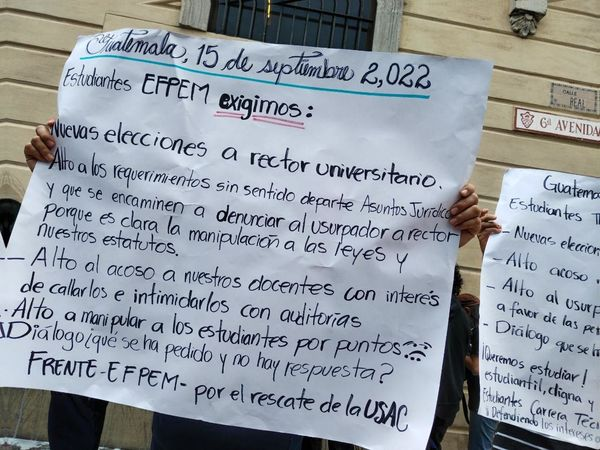 Guatemala, 15 de septiembre 2,022
Estudiantes EFPEM exigimos:
Nuevas elecciones a rector universitario.
Alto a los requerimientos sin sentido departe Asuntos Jurídico
y que se encaminen a denunciar al usurpador a rector
Porque es clara la manipulación a las leyes y
nuestros estatutos.
-- Alto al acoso a nuestros docentes con interés
de callarlos e intimidarlos con auditorías
- Alto, a manipular a los estudiantes por puntos
Diálogo ¿que se ha pedido y no hay respuesta?
FRENTE-EFPEM- por el rescate de la USAC
CALLE
REAL
6a AVENIDA
Guatema
Estudiantes T
- Nuevas eleccion
- Alto acoso
- Alto al usurp
a favor de las pe
- Diálogo que se h
¡Queremos estudiar!
estudiantil, digna y
Estudiantes Carrera Técn
¡Defendiendo los intereses